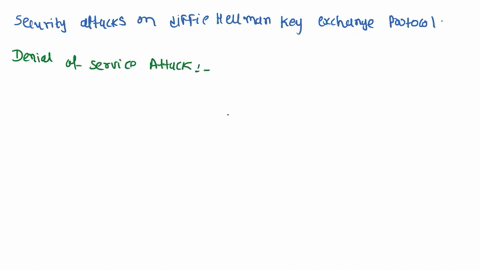 Security attacks on diffie Hellman key exchange Protocol.
Denial of service Attack:-